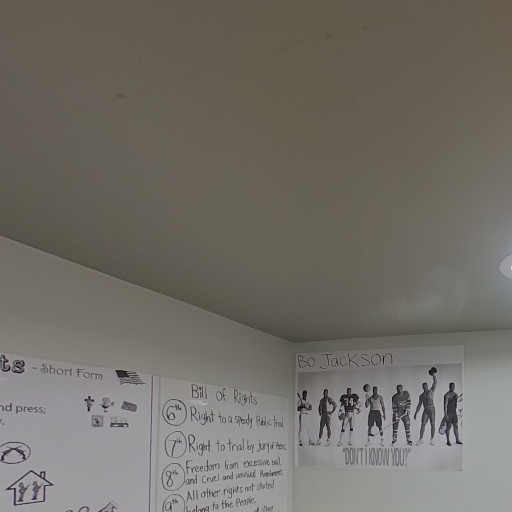 ts - Short Form
nd press;
Bill of Rights
6th Right to a speedy Public Trial.
7th Right to trial by jury of Peers.
8th Freedom from excessive bail,
and Cruel and unusual Punishment.
9th All other rights not stated
belong to the People.
Bo Jackson
"DON'T I KNOW YOU?"